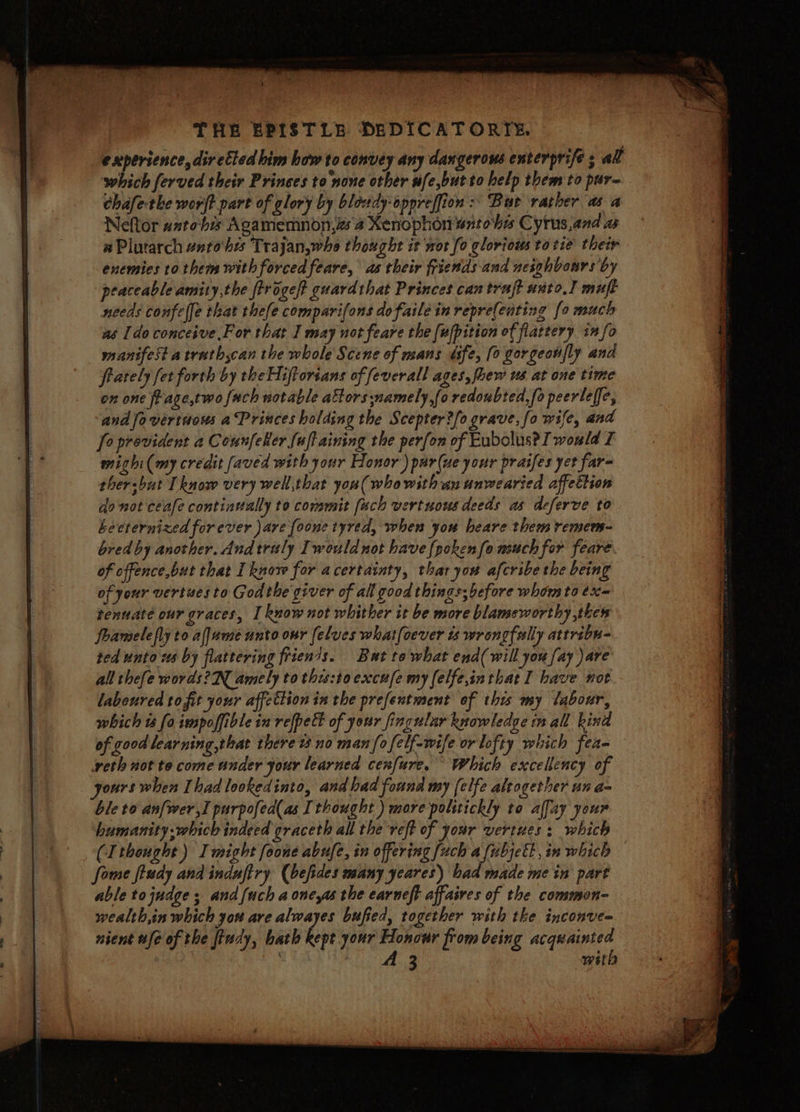 THE EPISTLE DEDICATORIE.
experience, directed him how to convey any dangerous enterprise ; all
which ſerved their Princes to none other uſe, but to help them to pur-
chaſe the worſt part of glory by bloudy oppreſſion : But rather as a
Neſtor unto his Agamemnon, as a Xenophon unto his Cyrus, and as
a Plutarch unto his Trajan, who thought it not ſo glorious to tie their
enemies to them with forced feare, as their friends and neighbours by
peaceable amity, the ſtrõgeſt guard that Princes can truſt unto. I muſt
needs confeſſe that theſe compariſons do faile in repreſenting ſo much
as I do conceive, For that I may not feare the ſuſpition of flattery in ſo
manifeſt a truth, can the whole Scene of mans life, ſo gorgeouſly and
ſtately ſet forth by the Hiſtorians of ſeverall ages, ſhew us at one time
on one ſtage, two ſuch notable actors ; namely, ſo redoubted, ſo peerleſſe,
and ſo vertuous a Princes holding the Scepter? ſo grave, ſo wiſe, and
ſo provident a Counſeller ſuſtaining the perſon of Eubolus? I would I
might (my credit ſaved with your Honor) purſue your praiſes yet far-
ther; but I know very well, that you (who with an unwearied affection
do not ceaſe continually to commit ſuch vertuous deeds as deſerve to
be eternized for ever) are ſoone tyred, when you heare them remem-
bred by another. And truly I would not have ſpoken ſo much for feare
of offence, but that I know for a certainty, that you aſcribe the being
of your vertues to God the giver of all good things; before whom to ex-
tenuate our graces, I know not whither it be more blameworthy, then
ſhameleſly to aſſume unto our ſelves whatſoever is wrongfully attribu-
ted unto us by flattering friends. But to what end (will you ſay) are
all theſe words? Namely to this: to excuſe my ſelfe, in that I have not
laboured to fit your affection in the preſentment of this my labour,
which is ſo impoſſible in reſpect of your ſingular knowledge in all kind
of good learning, that there is no man ſo ſelf-wiſe or lofty which fea-
reth not to come under your learned cenſure. Which excellency of
yours when I had looked into, and had found my ſelfe altogether una-
ble to anſwer, I purpoſed (as I thought) more politickly to aſſay your
humanity; which indeed graceth all the reſt of your vertues : which
(I thought) I might ſoone abuſe, in offering ſuch a ſubject, in which
ſome ſtudy and induſtry (beſides many yeares) had made me in part
able to judge ; and ſuch a one, as the earneſt affaires of the common-
wealth, in which you are alwayes buſied, together with the inconve-
nient uſe of the ſtudy, hath kept your Honour from being acquainted
A 3 with